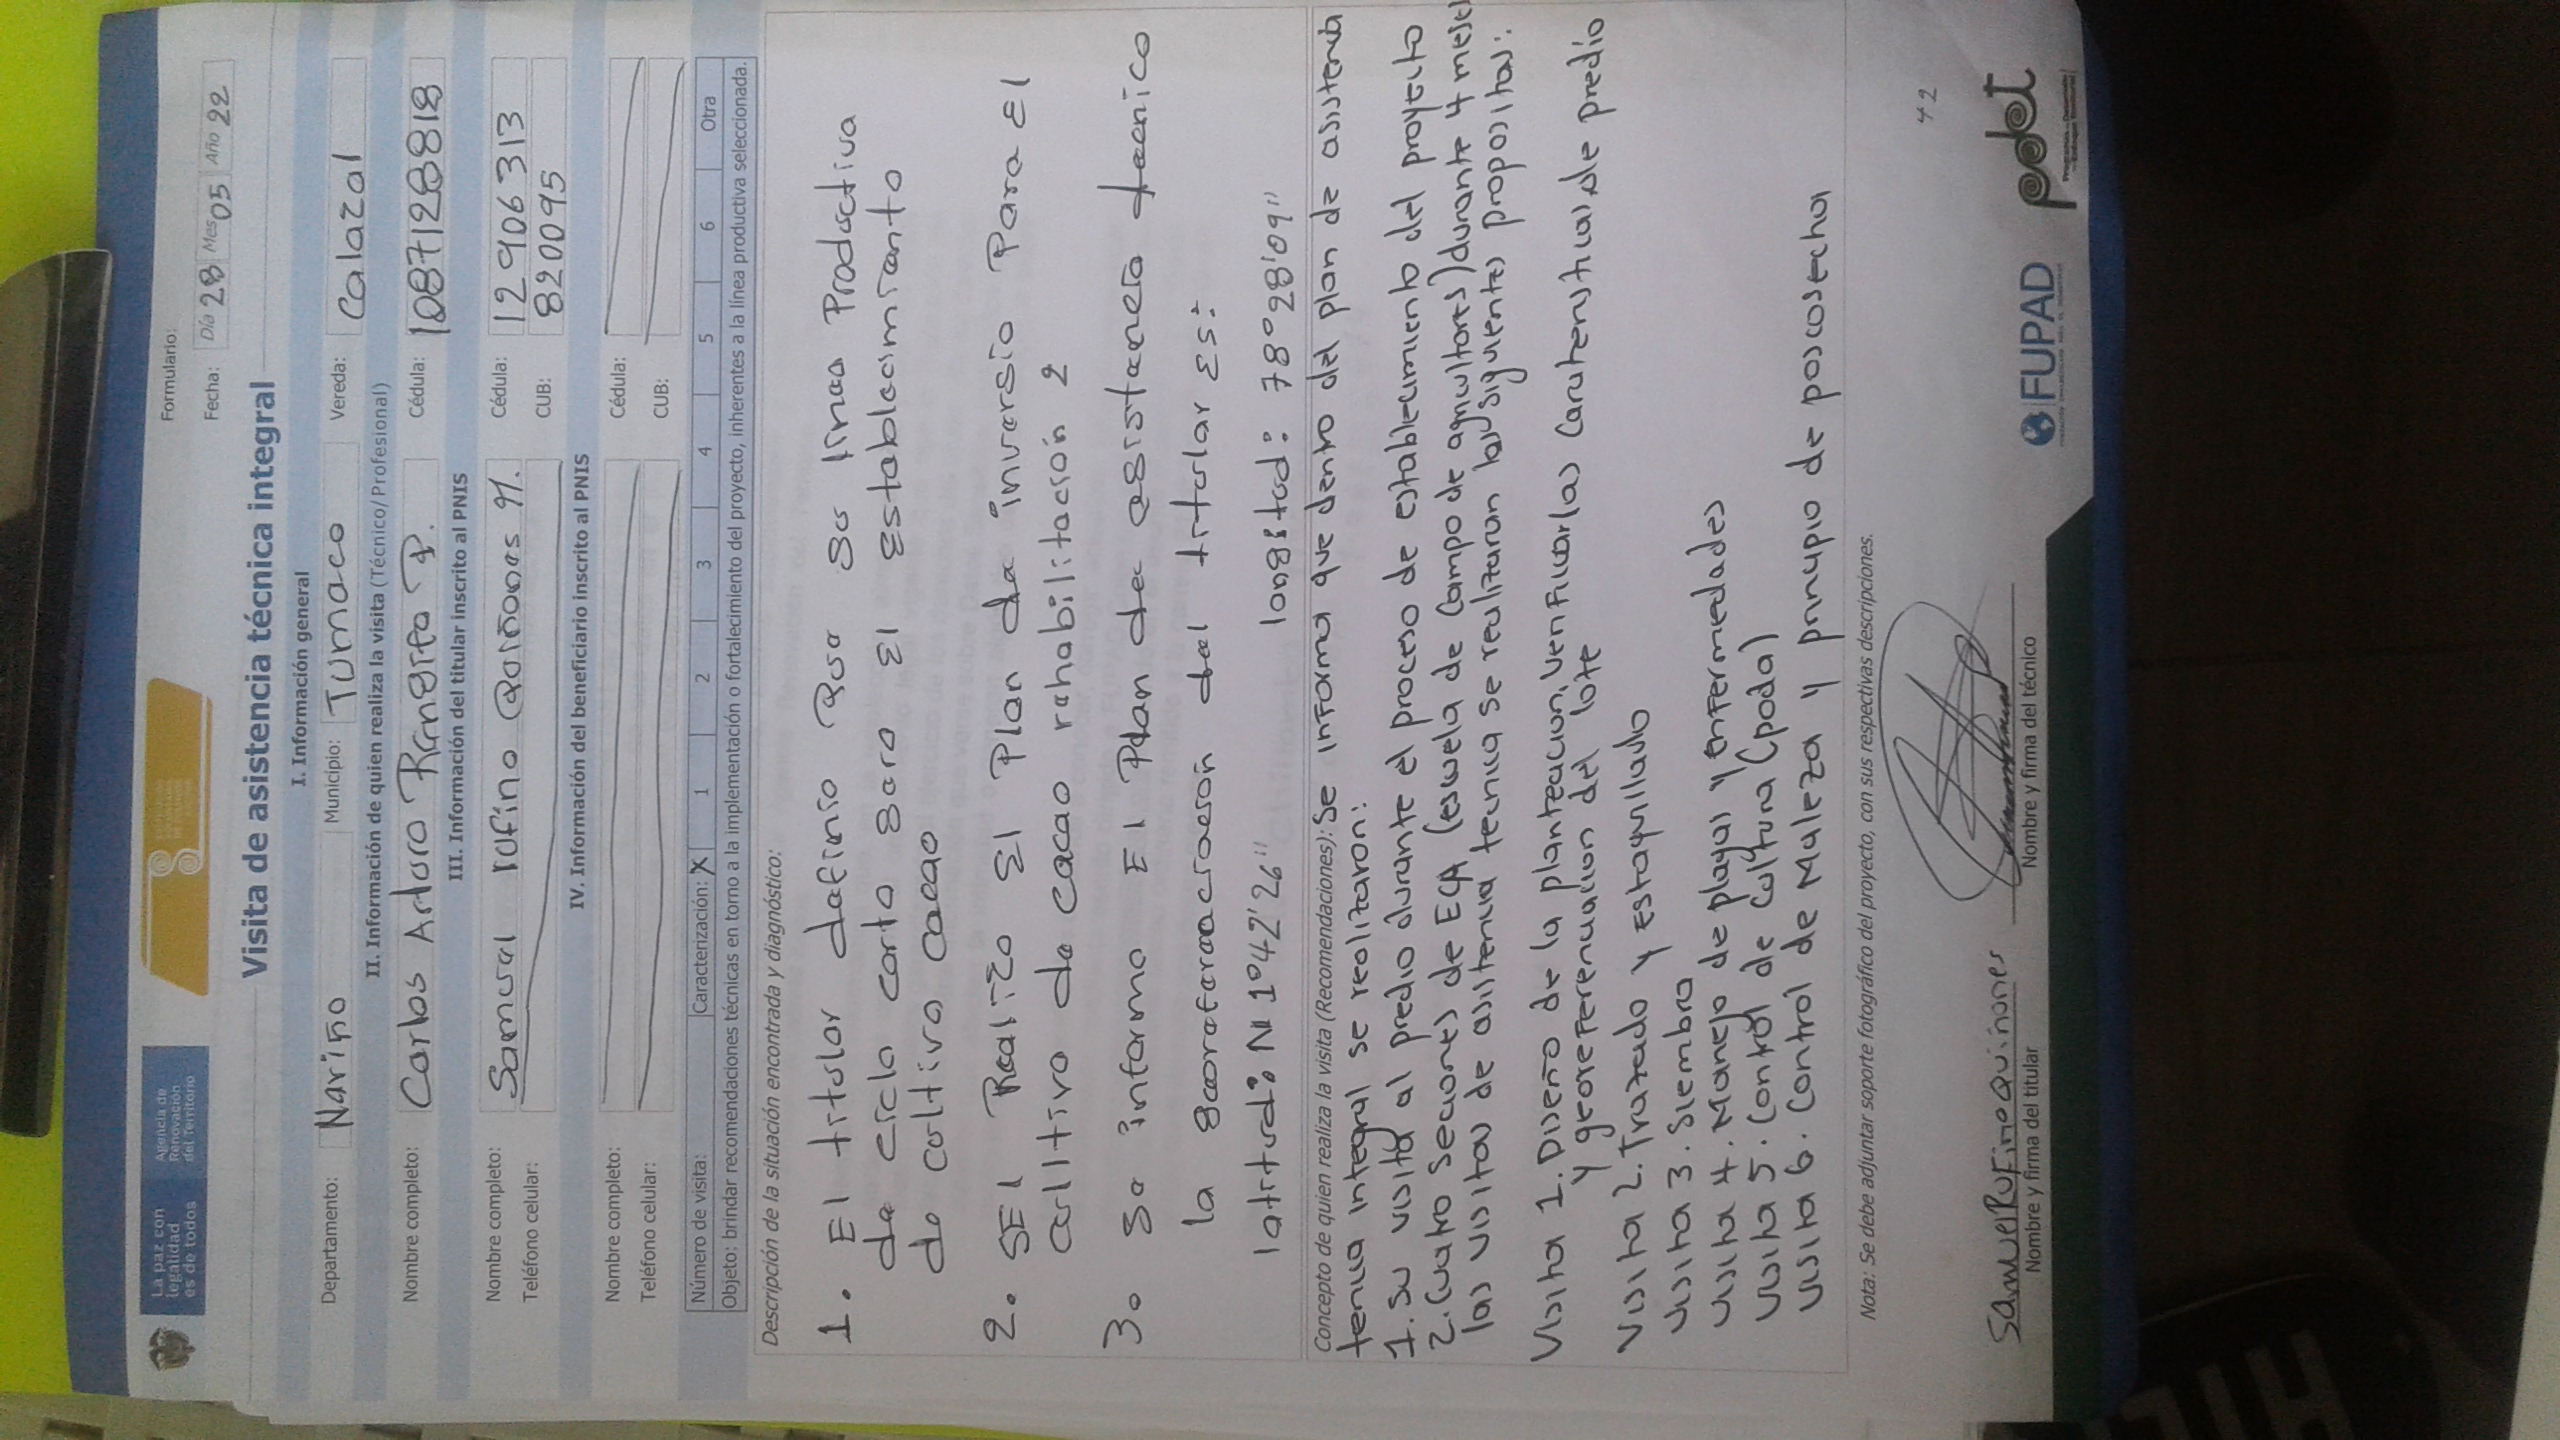 La paz con
legalidad
es de todos
Agencia de
Renovación
del Territorio
Formulario:
Fecha: Día 28 Mes 05 Año 22
Visita de asistencia técnica integral
I. Información general
Departamento: Nariño Municipio: Tumaco Vereda: Calazal
II. Información de quien realiza la visita (Técnico/Profesional)
Nombre completo: Carlos Arturo Rengifo P. Cédula: 1087128818
III. Información del titular inscrito al PNIS
Nombre completo: Samuel rufino Quiñones q. Cédula: 12906313
Teléfono celular: CUB: 820095
IV. Información del beneficiario inscrito al PNIS
Nombre completo: Cédula:
Teléfono celular: CUB:
Número de visita: Caracterización: X 1 2 3 4 5 6 Otra
Objeto: brindar recomendaciones técnicas en torno a la implementación o fortalecimiento del proyecto, inherentes a la línea productiva seleccionada.
Descripción de la situación encontrada y diagnóstico:
1. El titular definio que su linea Productiva
de ciclo corto sara El Establecimiento
de cultivo cacao
2. SE Realizo El Plan de inversio Para El
culltivo de cacao rehabilitación 2
3. Se informo El Plan de asistencia tecnico
la georeferenciacion del titular Es:
latitud: N 1°42'26" longitud: 78°28'09"
Concepto de quien realiza la visita (Recomendaciones): Se informa que dentro del plan de asistencia
tecnica integral se realizaron:
1. Su visita al predio durante el proceso de establecimiento del proyecto
2. Cuatro Secciones de ECA (escuela de Campo de agricultores) durante 4 meses
las visitas de asistencia tecnica se realizaran las siguientes propositos:
Visita 1. Diseño de la planteacion, Verificar las Caracteristicas de predio
y georeferenciacion del lote
Visita 2. Trazado y Estaquillado
Visita 3. Siembra
Visita 4. Manejo de plagas y enfermedades
Visita 5. Control de Cultura (poda)
Visita 6. Control de Maleza y principio de poscosecha
Nota: Se debe adjuntar soporte fotográfico del proyecto, con sus respectivas descripciones.
42
Samuel Rufino quiñones
Nombre y firma del titular
Nombre y firma del técnico
FUPAD
pdet